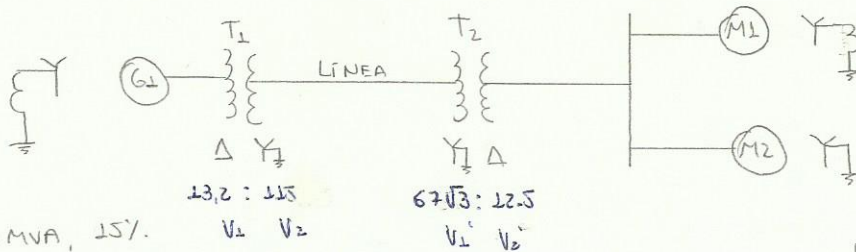 T₁ T₂
G1 LÍNEA M1
M2
Δ Y Y Δ
13,2 : 115 67√3 : 12.5
MVA, 15%. V₁ V₂ V₁' V₂'